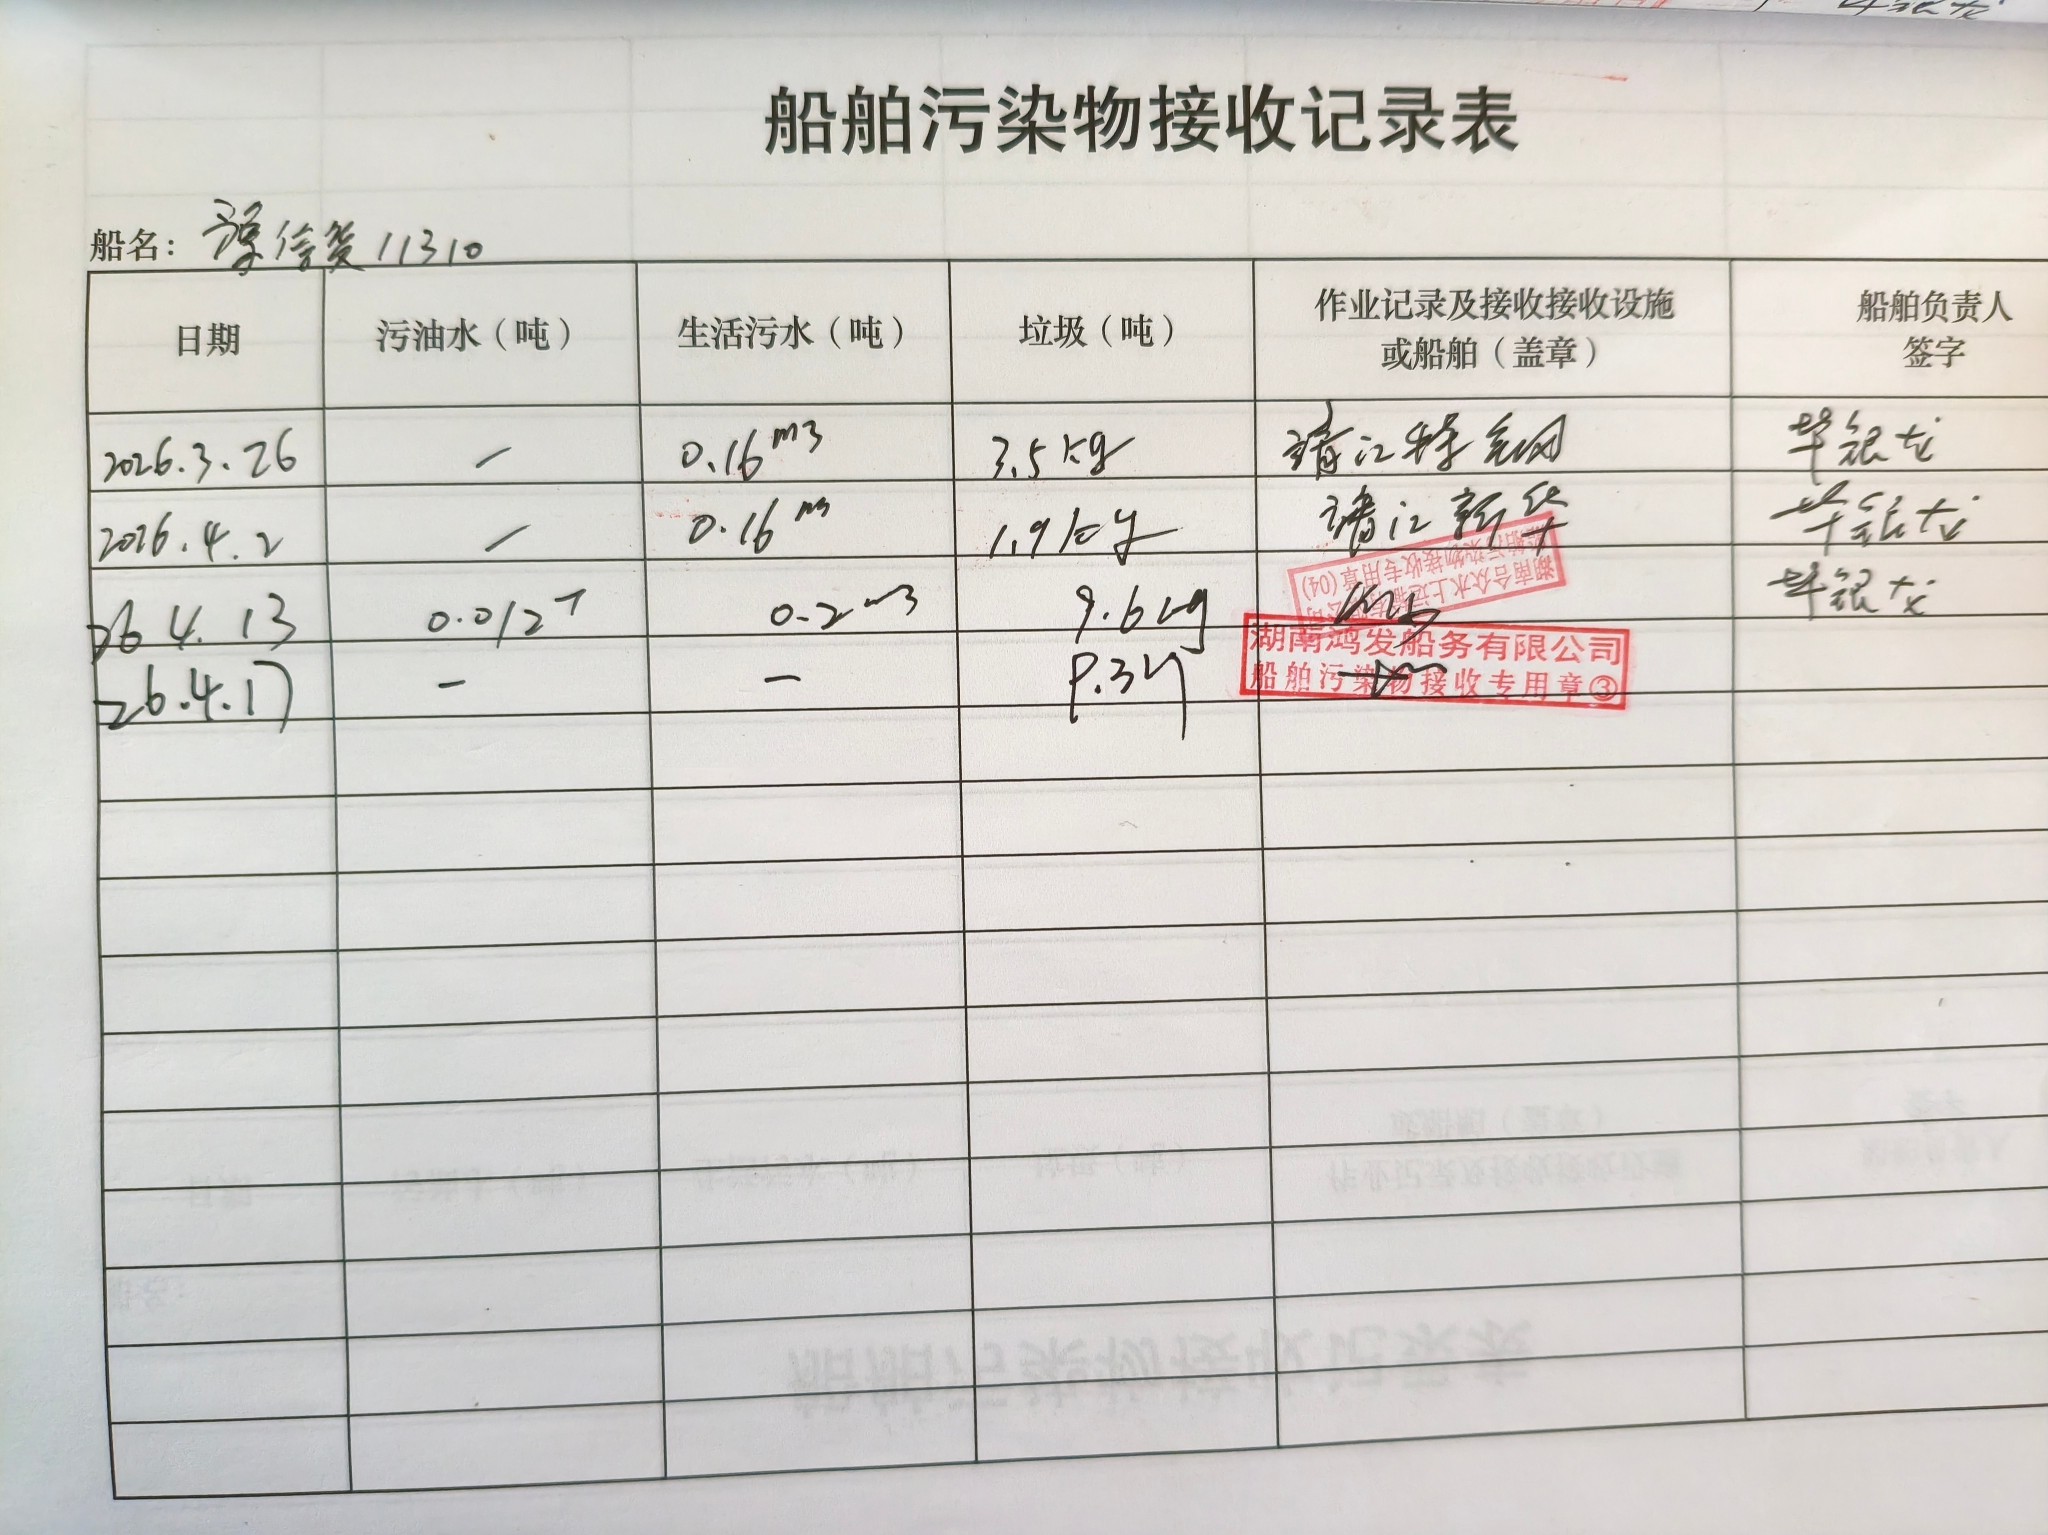 船舶污染物接收记录表
船名: 信 11310
日期 污油水（吨） 生活污水（吨） 垃圾（吨） 作业记录及接收接收设施或船舶（盖章） 船舶负责人签字
2026.3.26 / 0.16 m3 3.5 kg 靖江特钢 毕银龙
2026.4.2 / 0.16 m3 1.9 kg 靖江新华 毕银龙
26 4.13 0.012T 0.2 m3 9.6kg 毕银龙
湖南合众水上运输有限公司
船舶污染物接收专用章(04)
26.4.17 — —
湖南鸿发船务有限公司
船舶污染物接收专用章③